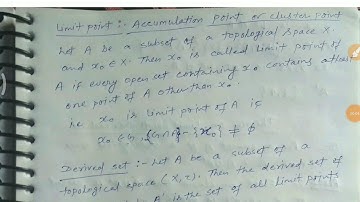 Limit point :- Accumulation point or cluster point
Let A be a subset of a topological space X
and x₀ ∈ X. Then x₀ is called limit point of
A if every open set containing x₀ contains atleast
one point of A other than x₀.
i.e x₀ is limit point of A is
x₀ ∈ G, (G∩A) - {x₀} ≠ ϕ
Derived set :- Let A be a subset of a
topological space (X, τ). Then the derived set of
A' is the set of all limit points